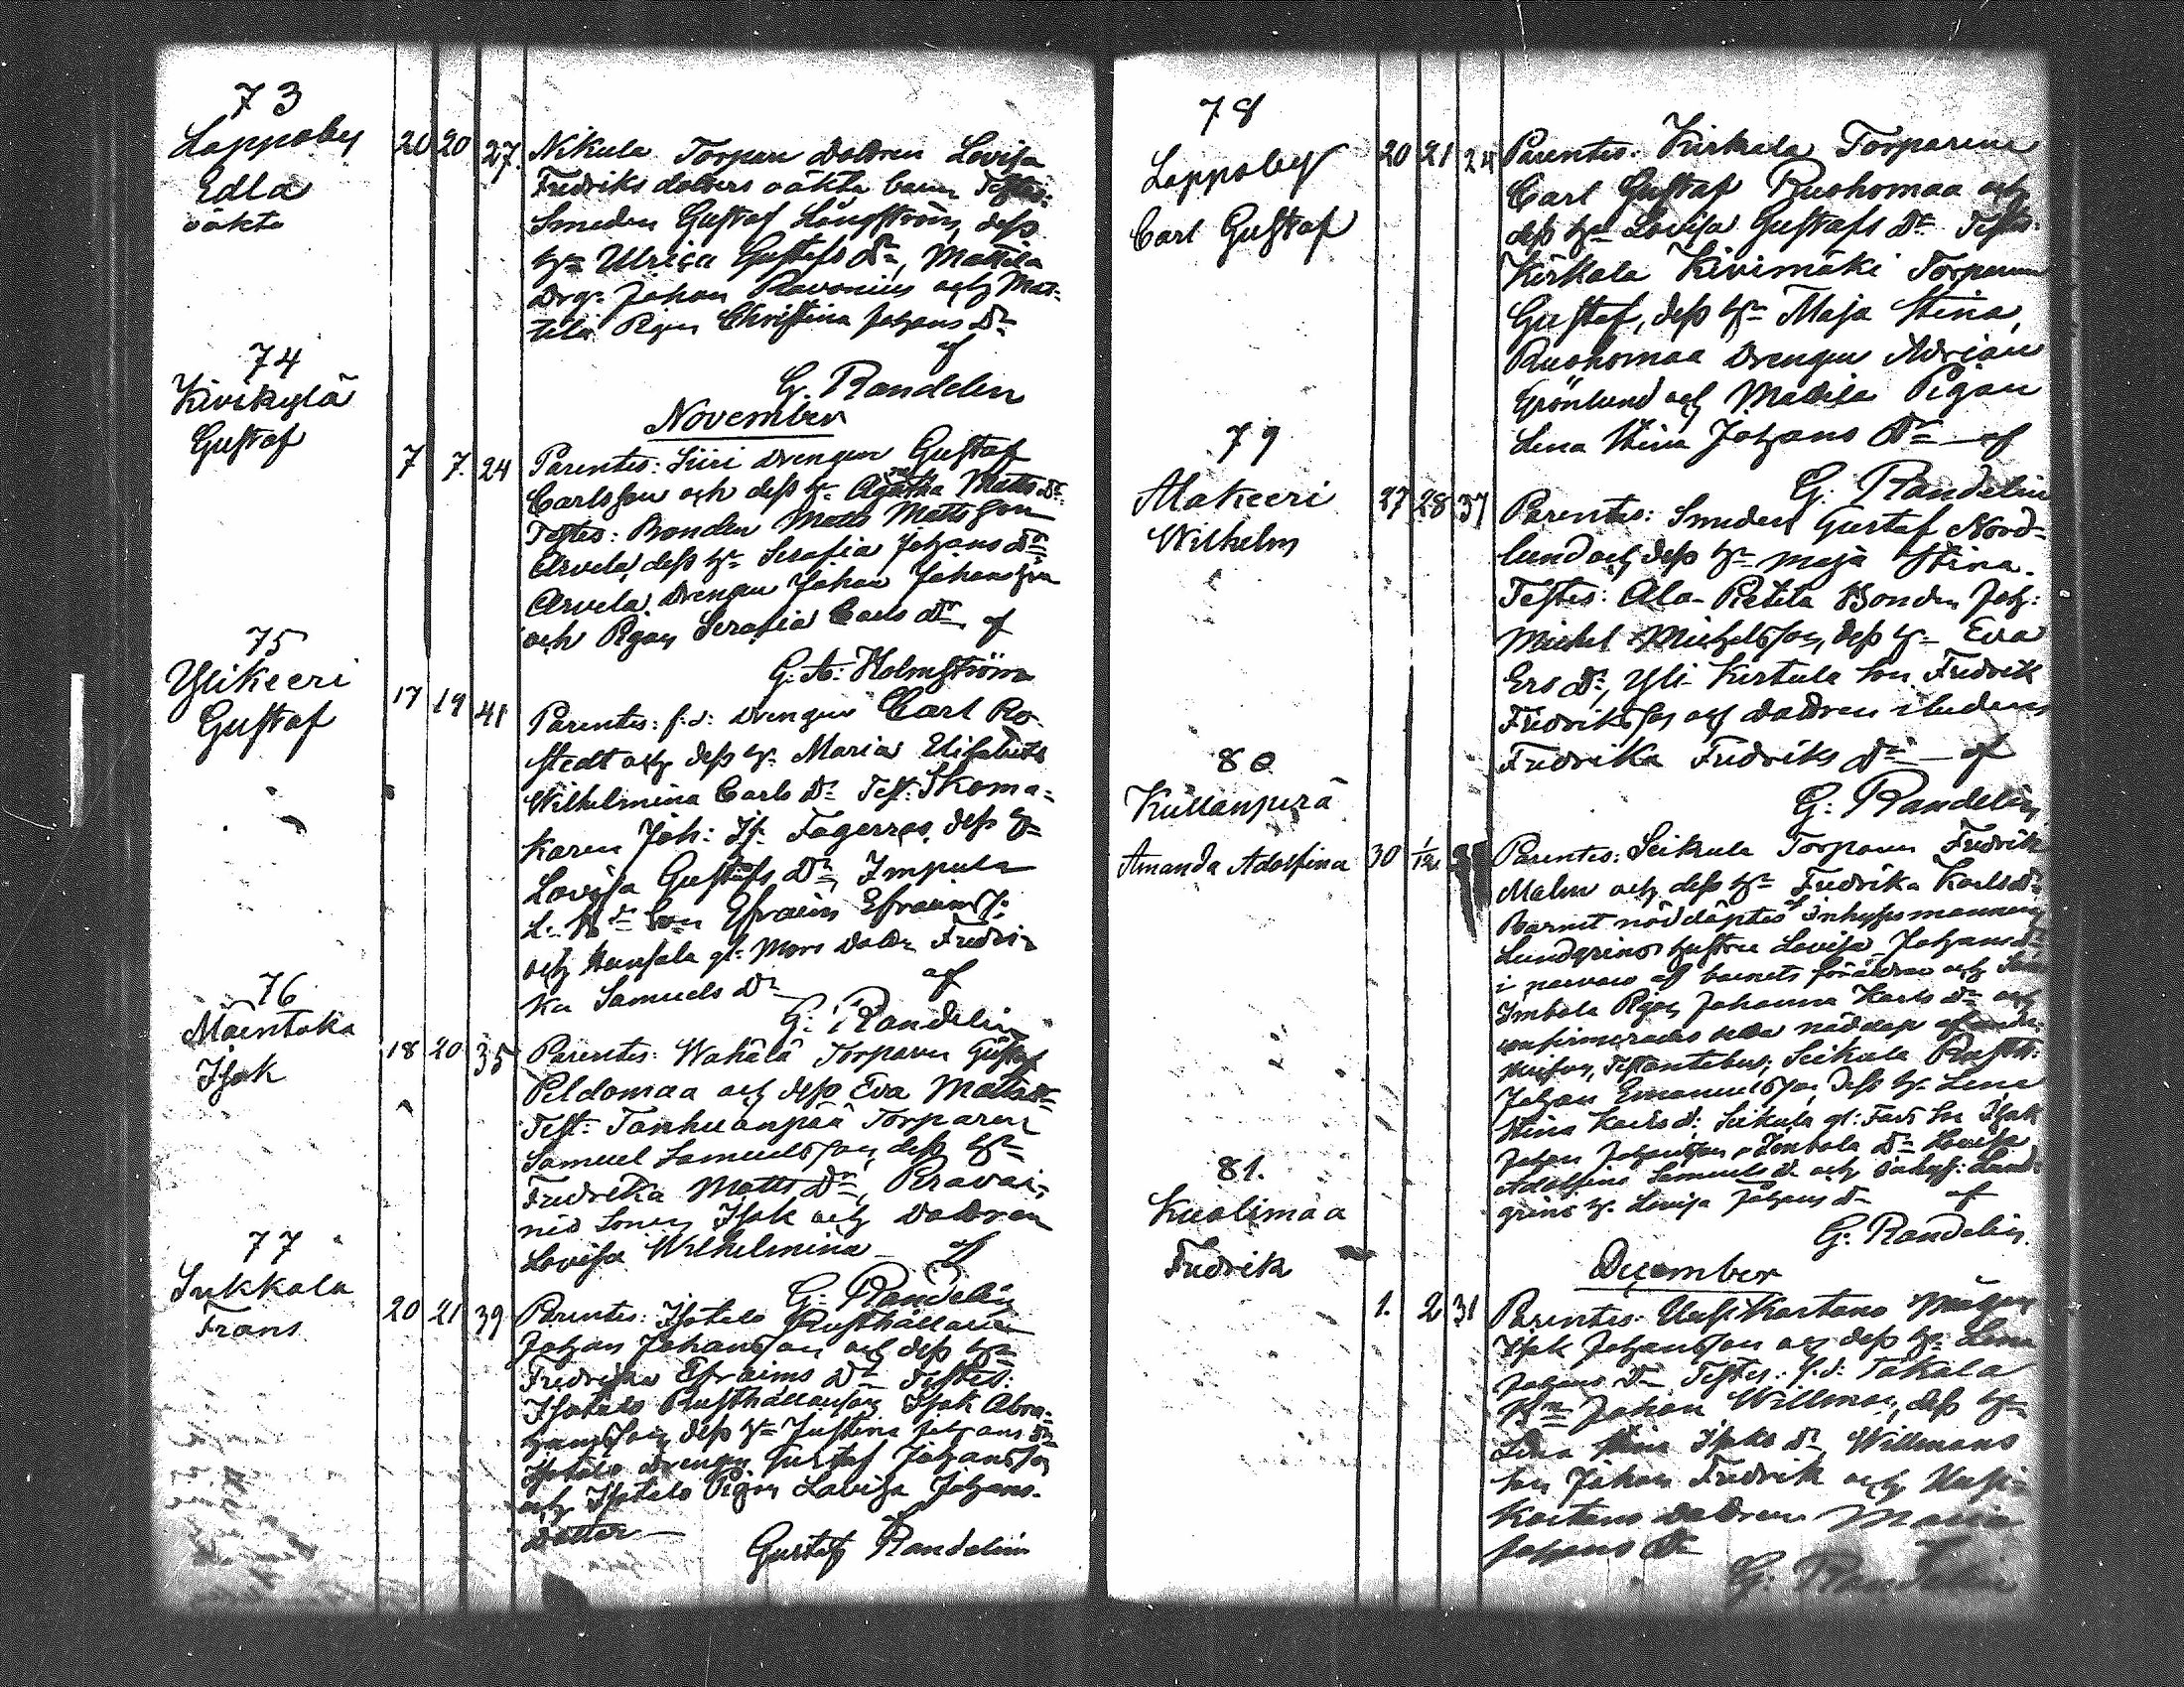 73
Lappoby
Edla
oäkta
20 20 27. Nikula Torpare dottren Lovisa
Fredriks dotters oäkta barn Testes:
Smeden Gustaf Långström, dess
h:u Ulrica Gustafs dr, Mattila
Drg: Johan Ravonius och Mat-
tila Pigan Christina Johans dr
af
G. Randelin
November
74
Kivikylä
Gustaf
7 7. 24 Parentes: Siiri drengen Gustaf
Carlsson och dess h. Agatha Matts dr.
Testes: Bonden Matts Mattsson
Arvela, dess h: Serafia Johans dr
Arvela drengen Johan Johansson
och Pigan Serafia Carls dr, af
G. A. Holmström
75
Ylikeeri
Gustaf
17 19 41 Parentes: f.d: drengen Carl Ro-
stedt och dess h. Maria Elisabeth
Wilhelmina Carls dr Test: Skoma-
karen Joh: If. Fagerros, dess h
Lovisa Gustafs dr, Impula
Son Efraim Efraims
och Hunsala gl: Mors dottr Fredri-
ka Samuels dr af
G: Randelin
76
Maentaka
Isak
18 20 35 Parentes: Wähälä Torparen Gustaf
Peldomaa och dess Eva Matts dr
Test: Tanhuanpää Torparen
Samuel Samuelsson, dess h
Fredrika Matts dr, Pravai-
nio Sonen Isak och dottren
Lovisa Wilhelmina – af
G: Randelin
77
Sukkala
Frans
20 21 39 Parentes: Isotalo Rusthållaren
Johan Johansson och dess h
Fredrika Efraims dr Testes:
Isotalo Rusthållaren Isak Abra-
hamsson, dess h Justina Johans dr
Isotalo drengen Gustaf Johansson
och Isotalo Pigan Lovisa Johans-
dotter –
Gustaf Randelin
78
Lappoby
Carl Gustaf
20 21 24 Parentes: Kirkala Torparene
Carl Gustaf Ruohomaa och
dess h Lovisa Gustafs dr Testes:
Kirkala Kivimäki Torparen
Gustaf, dess h Maja Stina,
Ruohomaa drengen Adrian
Grönlund och Mattila Pigan
Lena Stina Johans dr – af
G: Randelin
79
Alakeeri
Wilhelm
27 28 37 Parentes: Smeden Gustaf Nord-
lund och dess h Maja Stina.
Testes: Ala-Pietila Bonden Joh:
Michel Michelsson, dess h Eva
Ers dr, Yli-Kirtula Son Fredrik
Fredriksson och dottren
Fredrika Fredriks dr – af
G: Randelin
80
Kullanperä
Amanda Adolfina 30 1/12 Parentes: Seikula Torparen Fredrik
Malm och dess h Fredrika Karls dr
Barnet nöddöptes Inhysesmannen
Lundgrens hustru Lovisa Johans dr
i närvaro af barnets föräldrar och
Imbola Pigan Johanna Karls dr och
confirmerades detta nöddop af
Testantibus, Seikula Rusth:
Johan Emanuelsson, dess h. Lena
Stina Karls d: Seikula gl: Fars Son Isak
Johan Johansson, Imbola dr Lovisa
Adolfina Samuels d. och Inhys: Lund-
grens h. Lovisa Johans dr af
G: Randelin
December
81.
Kuolimaa
Fredrik
1. 2 31 Parentes: Uusi-Kartano Mågen
Isak Johansson och dess h Lena
Johans dr Testes: f.d: Takala
Johan Willman, dess h
Lena Stina Isaks dr, Willmans
Son Johan Fredrik och Uusi-
Kartano dottren Maria
Johans dr
G. Randelin